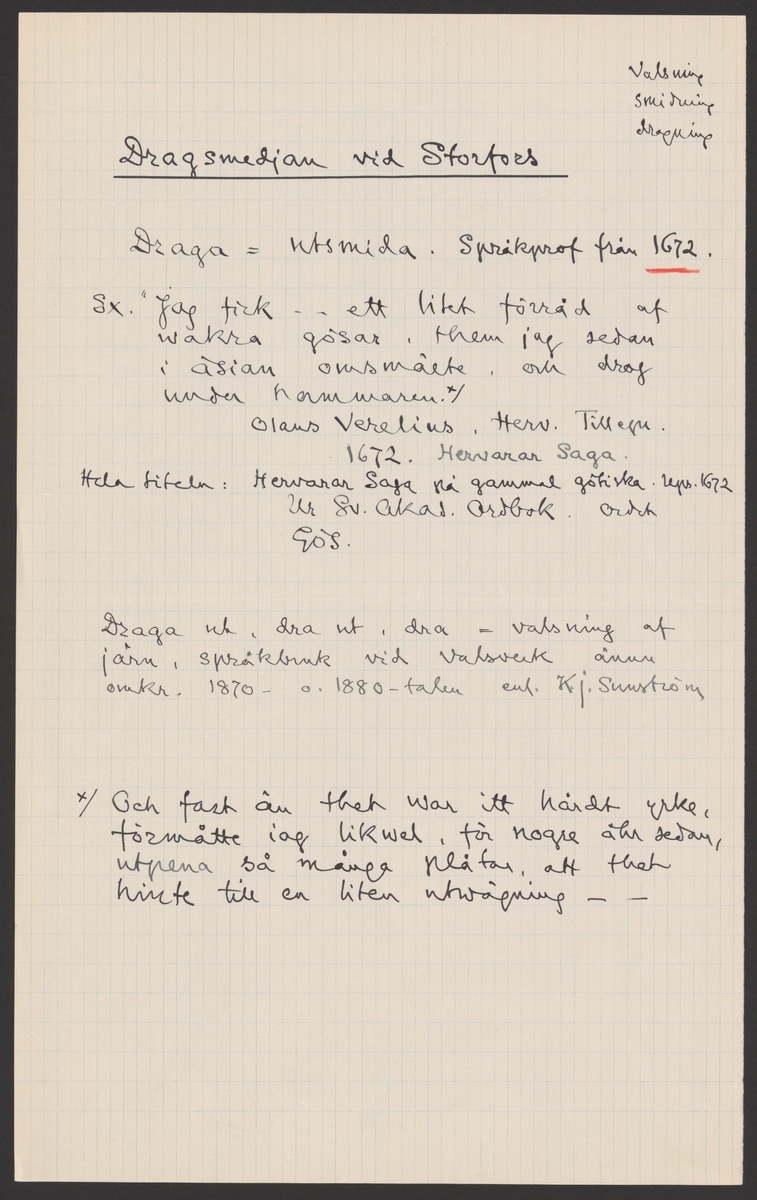 Valsning
smidning
dragning
Dragsmedjan vid Storfors
Draga = utsmida. Språkprof från 1672.
Ex. "Jag fick - - ett litet förråd af
wakra gösar, them jag sedan
i äsian omsmälte, och drog
under hammaren. x/
Olaus Verelius, Herv. Tillegn.
1672. Hervarar Saga.
Hela titeln: Hervarar Saga på gammal götiska. Ups. 1672
Ur Sv. Akad. Ordbok. ordet
Gös.
Draga ut, dra ut, dra = valsning af
järn, språkbruk vid valsverk ännu
omkr. 1870- o. 1880-talen enl. Kj. Sunström
x/ Och fast än thet war itt hårdt yrke,
förmåtte iag likwel, för nogre åhr sedan,
utpena så många plåtar, att thet
hincte till en liten utwägning - -